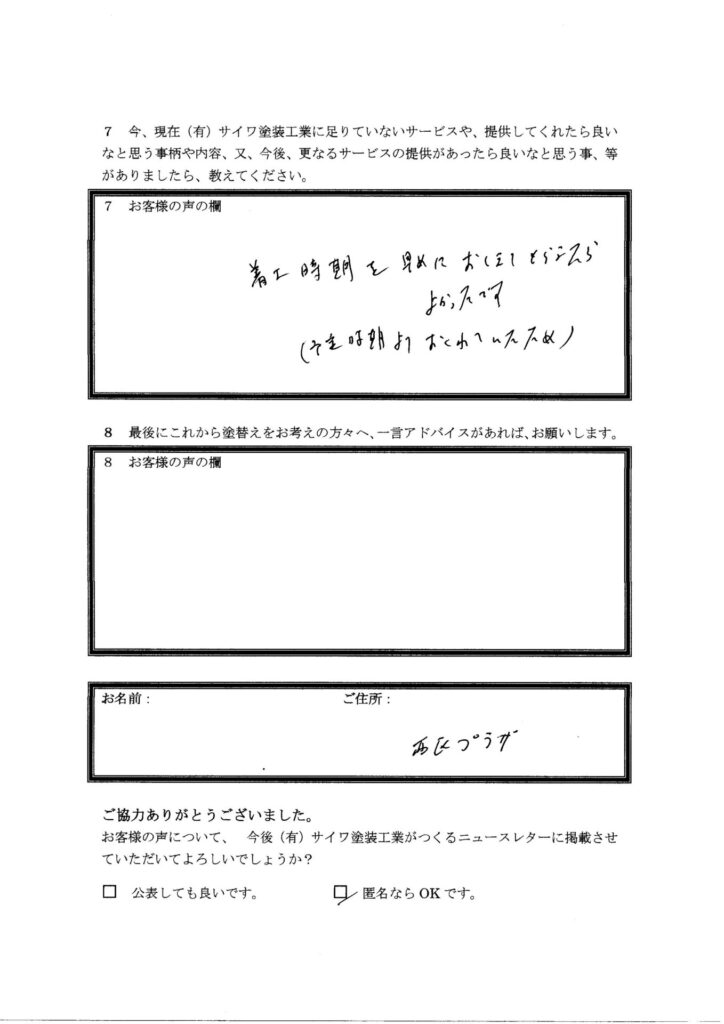 7 今、現在（有）サイワ塗装工業に足りていないサービスや、提供してくれたら良い
なと思う事柄や内容、又、今後、更なるサービスの提供があったら良いなと思う事、等
がありましたら、教えてください。
7 お客様の声の欄
着工時期を早めにおしえてもらえたら
よかったです
(予定時期よりおくれていたため)
8 最後にこれから塗替えをお考えの方々へ、一言アドバイスがあれば、お願いします。
8 お客様の声の欄
お名前： ご住所：
西区プラザ
ご協力ありがとうございました。
お客様の声について、 今後（有）サイワ塗装工業がつくるニュースレターに掲載させ
ていただいてよろしいでしょうか？
□ 公表しても良いです。 □ 匿名なら OK です。